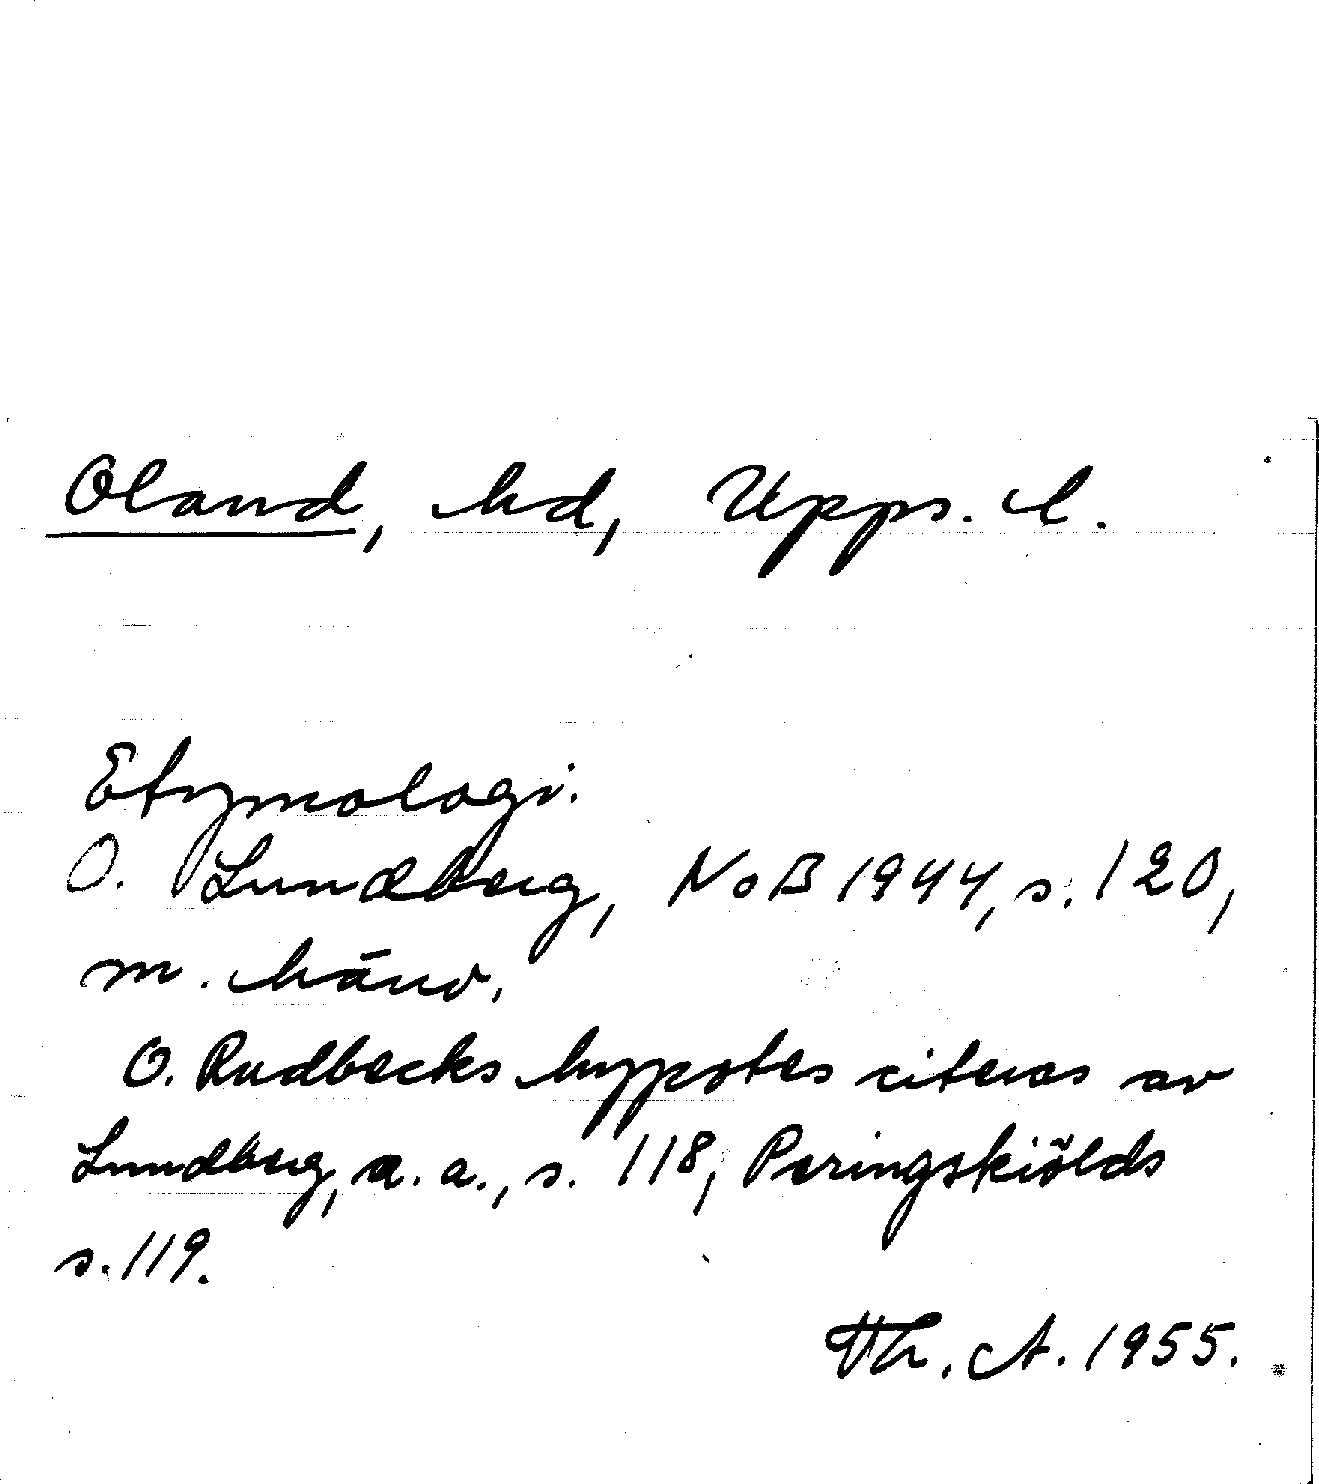 Oland, hd, Upps. l.
Etymologi.
O. Lundberg, NoB 1944, s. 120,
m. hänv.
O. Rudbecks hypotes citeras av
Lundberg, a. a., s. 118, Peringskiölds
s. 119.
Th. A. 1955.